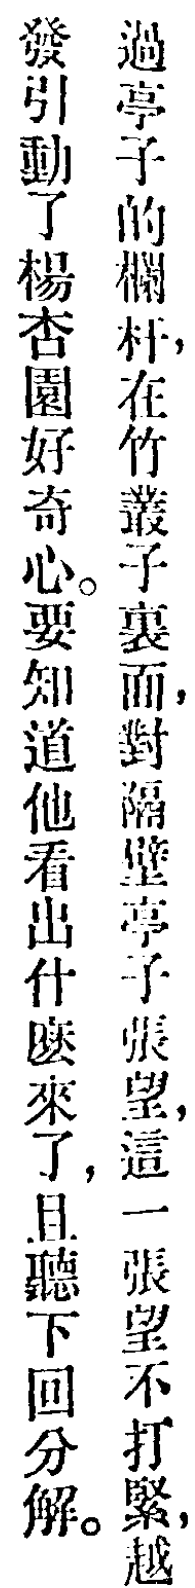 過亭子的欄杆,在竹叢子裏面,對隔壁亭子張望,這一張望不打緊,越
發引動了楊杏園好奇心。要知道他看出什麽來了,且聽下回分解。